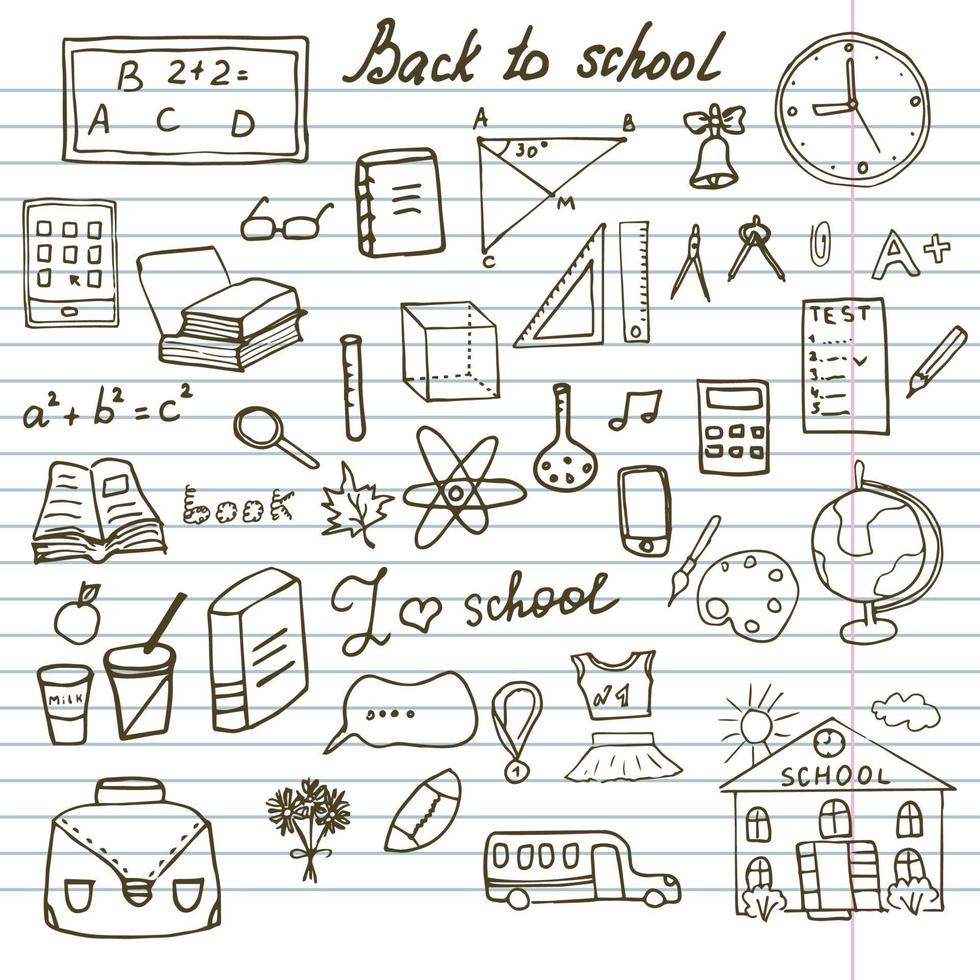 Back to school
B 2+2=
A C D
A B
30°
M
C
A+
TEST
1.
2.
3.
4.
5.
a²+b²=c²
book
I ♡ school
Milk
....
№1
1
SCHOOL